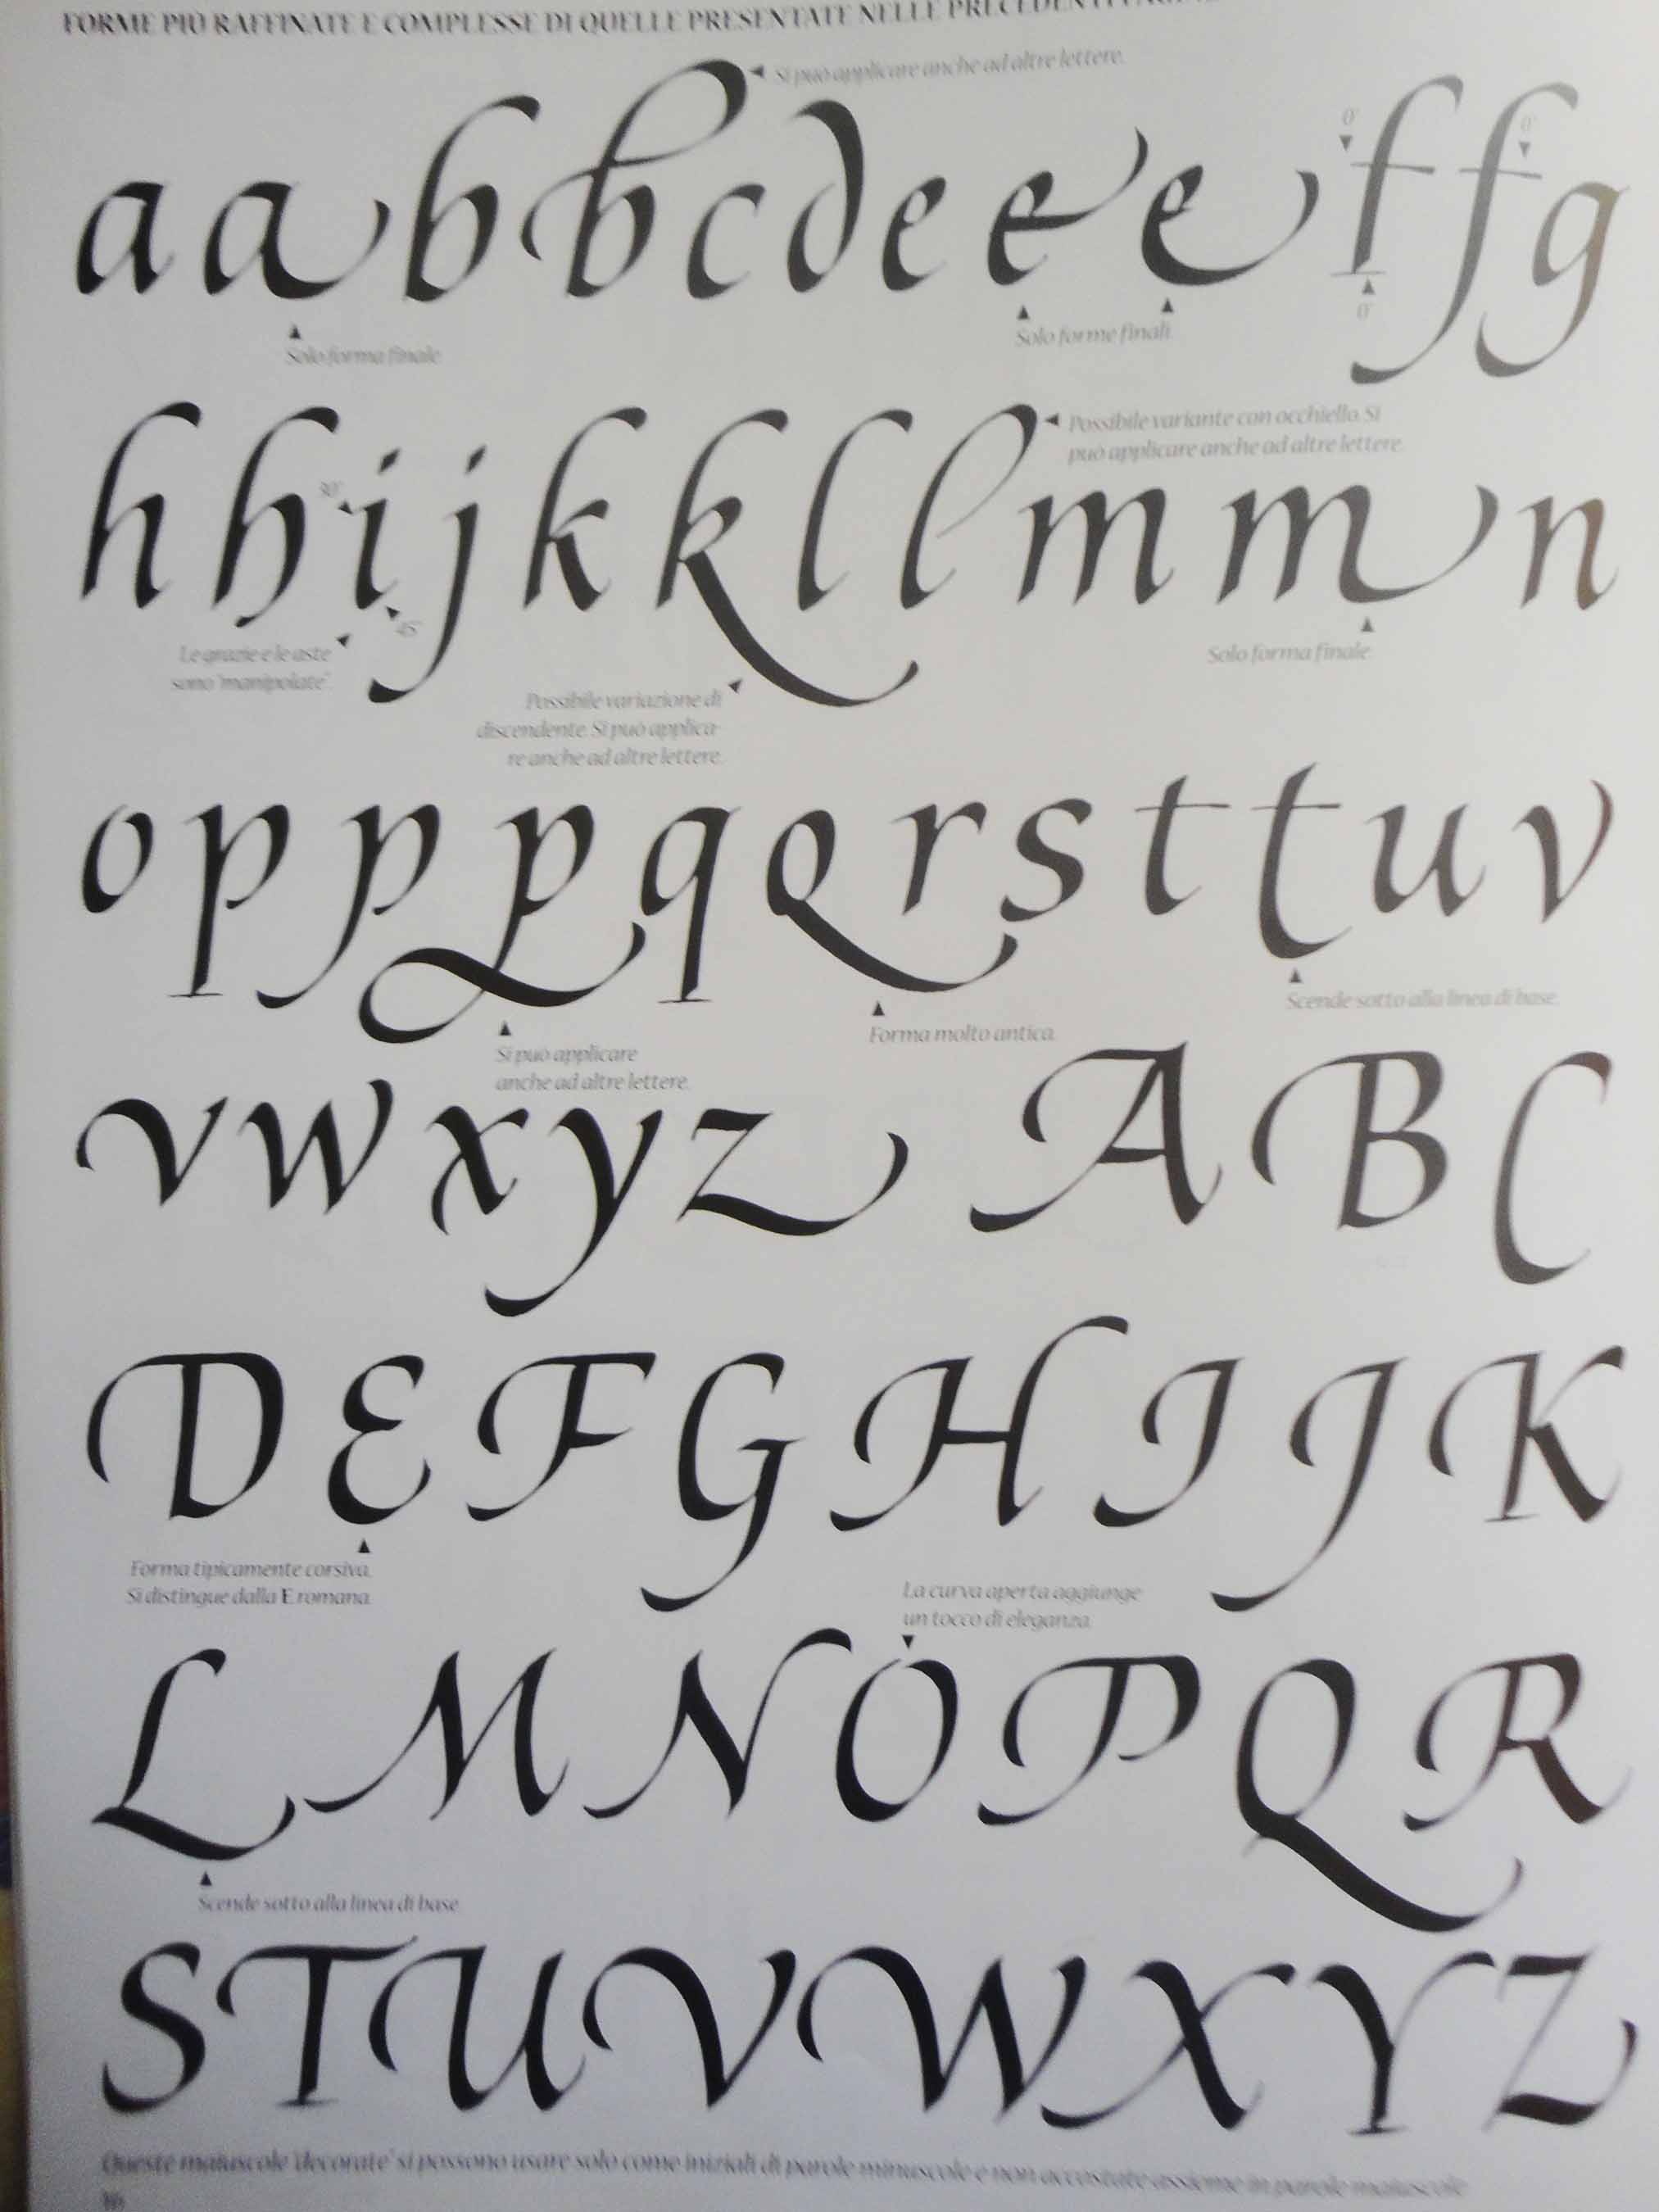 FORME PIÙ RAFFINATE E COMPLESSE DI QUELLE PRESENTATE NELLE PRECEDENTI
Si può applicare anche ad altre lettere.
a a b b c d e e e f f g
0° 0°
0°
Solo forma finale
Solo forme finali.
Possibile variante con occhiello. Si
può applicare anche ad altre lettere.
h h i j k k l l m m n
30°
45°
Le grazie e le aste
sono 'manipolate'.
Solo forma finale.
Possibile variazione di
discendente. Si può applica-
re anche ad altre lettere.
o p p p q q r s t t u v
Scende sotto alla linea di base.
Forma molto antica.
Si può applicare
anche ad altre lettere.
v w x y z A B C
D E F G H I J K
Forma tipicamente corsiva.
Si distingue dalla E romana.
La curva aperta aggiunge
un tocco di eleganza.
L M N O P Q R
Scende sotto alla linea di base
S T U V W X Y Z
Queste maiuscole 'decorate' si possono usare solo come iniziali di parole minuscole e non accostate assieme in parole maiuscole
16